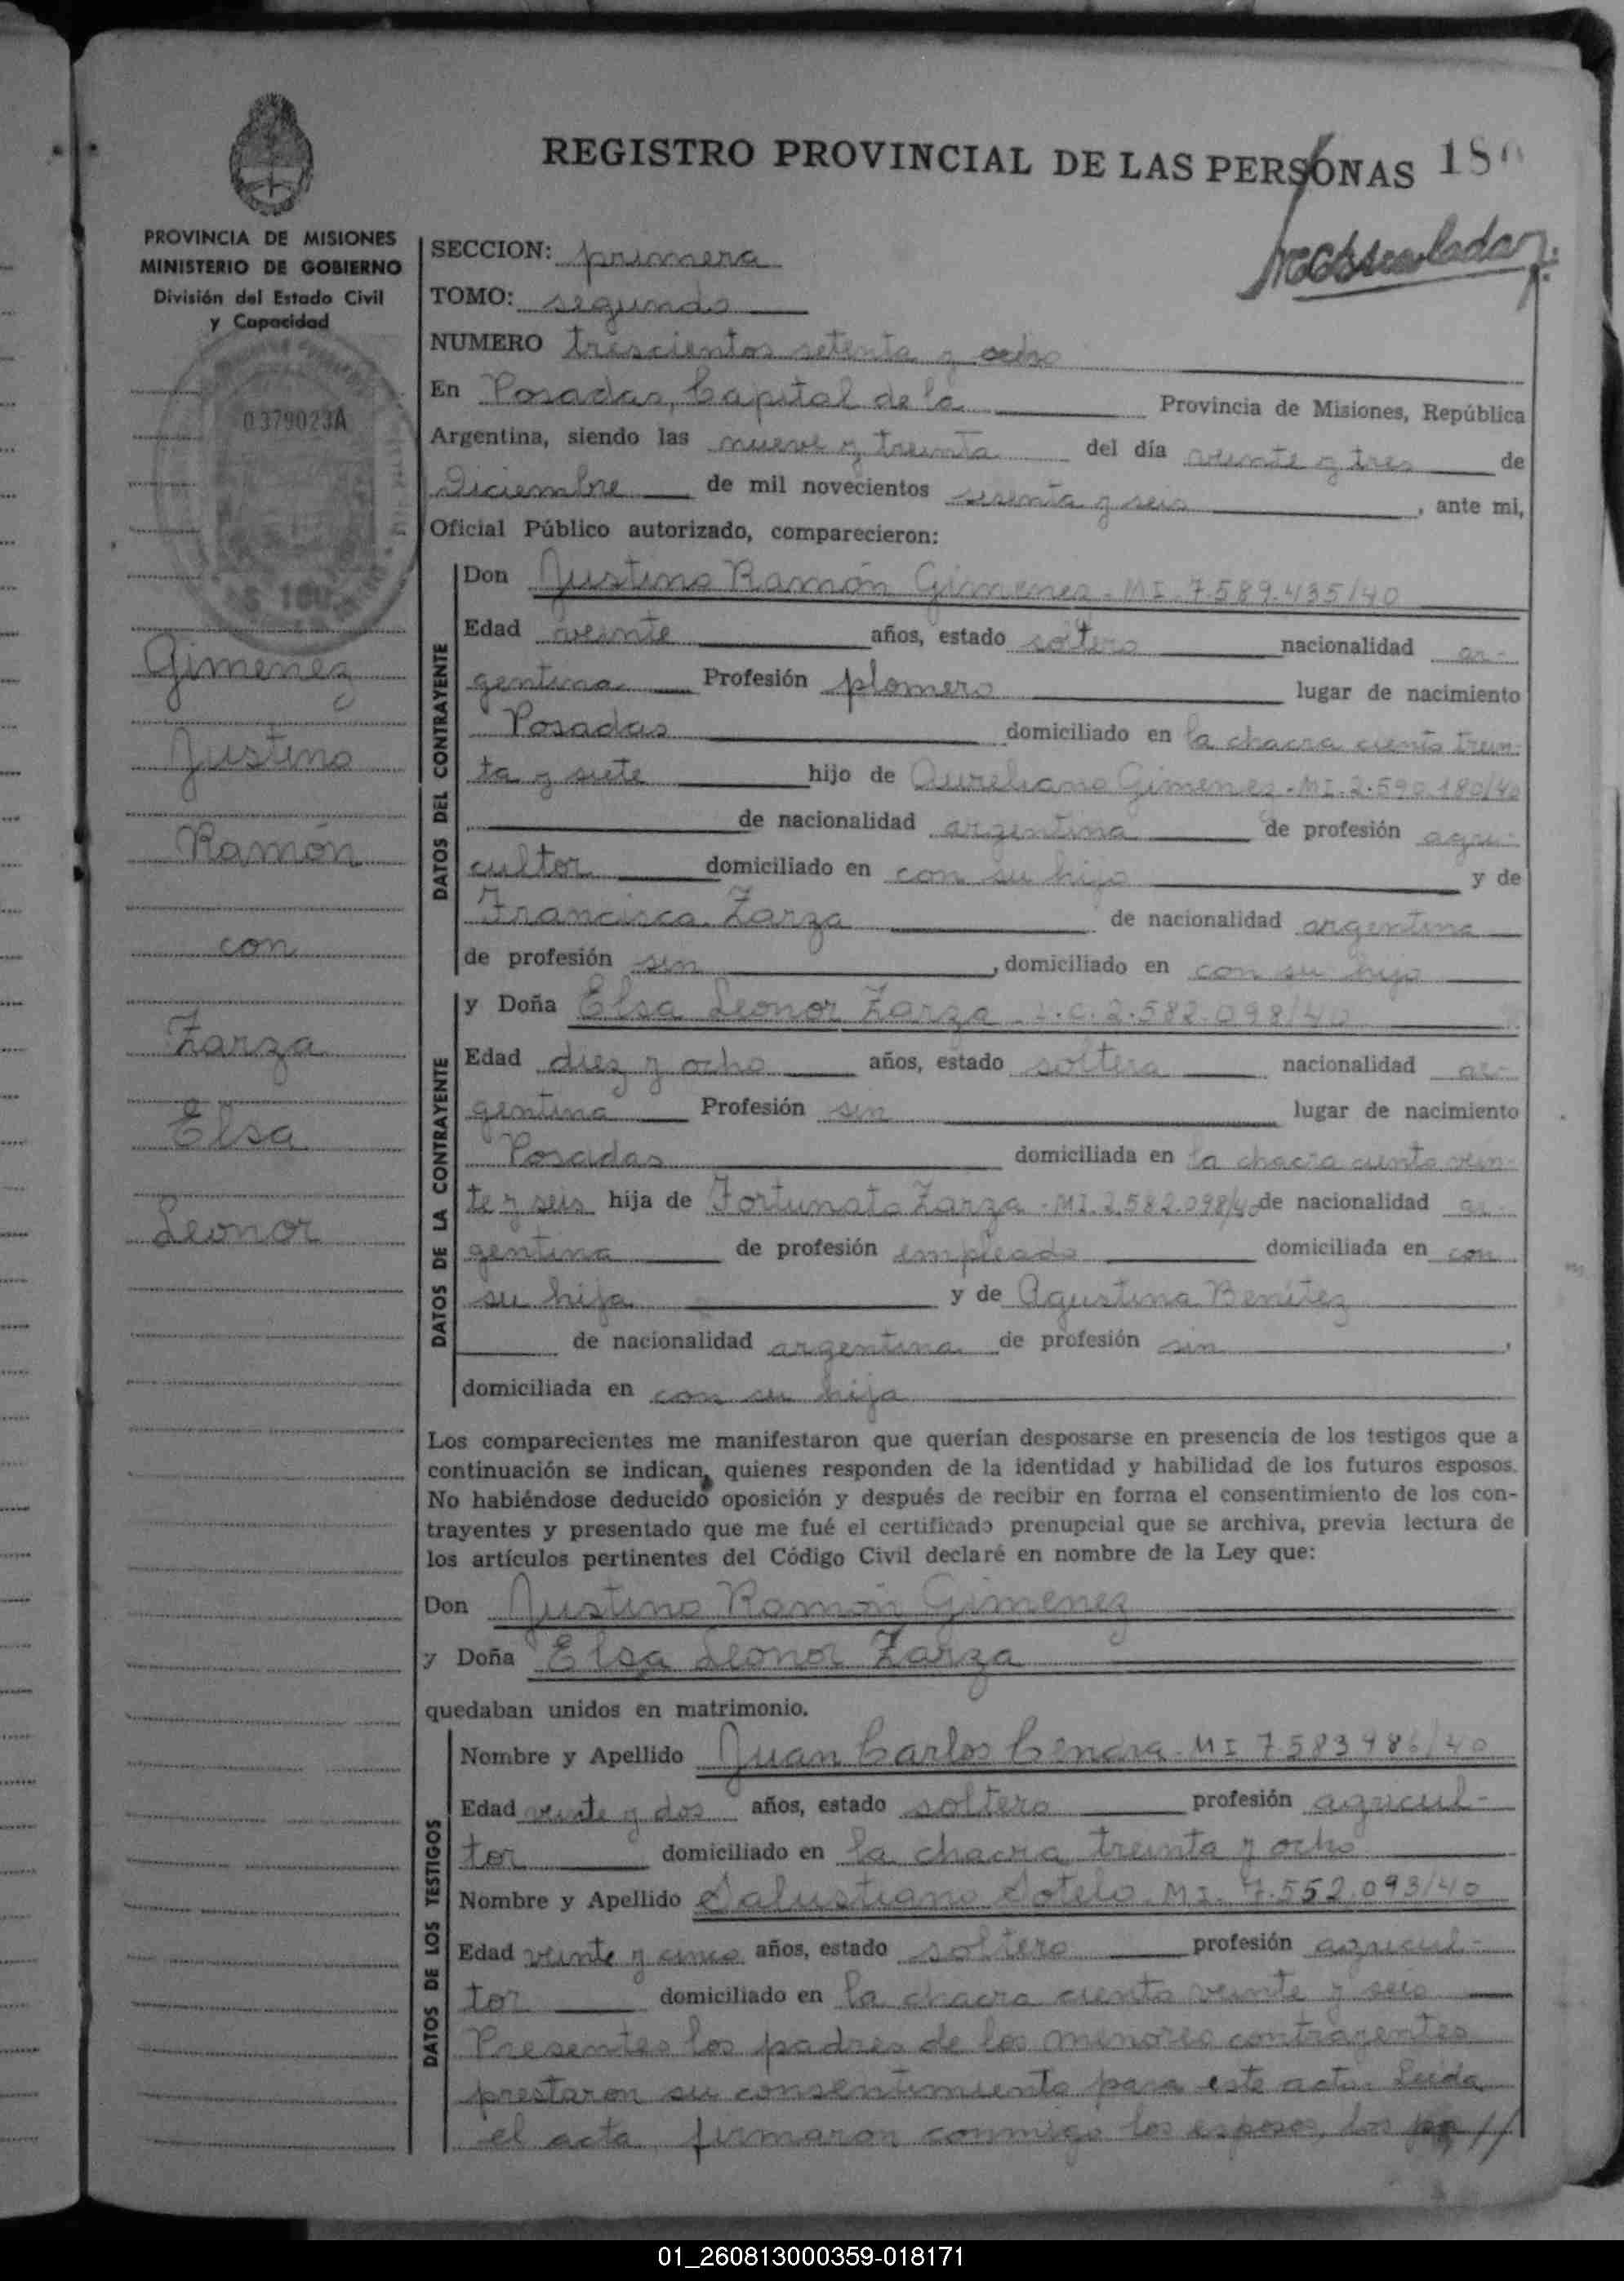 REGISTRO PROVINCIAL DE LAS PERSONAS 18
PROVINCIA DE MISIONES
MINISTERIO DE GOBIERNO
División del Estado Civil
y Capacidad
0379023A
$ 100
Gimenez
Justino
Ramón
con
Zarza
Elsa
Leonor
SECCION: primera
TOMO: segundo
NUMERO trescientos setenta y ocho
En Posadas, Capital de la Provincia de Misiones, República
Argentina, siendo las nueve y treinta del día veinte y tres de
Diciembre de mil novecientos sesenta y seis, ante mi,
Oficial Público autorizado, comparecieron:
DATOS DEL CONTRAYENTE
Don Justino Ramón Gimenez - MI. 7.589.435/40
Edad veinte años, estado soltero nacionalidad ar-
gentina Profesión plomero lugar de nacimiento
Posadas domiciliado en la chacra ciento trein-
ta y siete hijo de Aureliano Gimenez - MI. 2.590.180/40
de nacionalidad argentina de profesión agri-
cultor domiciliado en con su hijo y de
Francisca Zarza de nacionalidad argentina
de profesión sin, domiciliado en con su hijo
DATOS DE LA CONTRAYENTE
y Doña Elsa Leonor Zarza - L.C. 2.582.098/40
Edad diez y ocho años, estado soltera nacionalidad ar-
gentina Profesión sin lugar de nacimiento
Posadas domiciliada en la chacra ciento vein-
te y seis hija de Fortunato Zarza - MI. 2.582.098/40 de nacionalidad ar-
gentina de profesión empleado domiciliada en con
su hija y de Agustina Benitez
de nacionalidad argentina de profesión sin,
domiciliada en con su hija
Los comparecientes me manifestaron que querían desposarse en presencia de los testigos que a
continuación se indican, quienes responden de la identidad y habilidad de los futuros esposos.
No habiéndose deducido oposición y después de recibir en forma el consentimiento de los con-
trayentes y presentado que me fué el certificado prenupcial que se archiva, previa lectura de
los artículos pertinentes del Código Civil declaré en nombre de la Ley que:
Don Justino Ramón Gimenez
y Doña Elsa Leonor Zarza
quedaban unidos en matrimonio.
DATOS DE LOS TESTIGOS
Nombre y Apellido Juan Carlos Cendra - MI 7.583.986/40
Edad veinte y dos años, estado soltero profesión agricul-
tor domiciliado en la chacra treinta y ocho
Nombre y Apellido Salustiano Sotelo - MI. 7.552.093/40
Edad veinte y cinco años, estado soltero profesión agricul-
tor domiciliado en la chacra ciento veinte y seis
Presentes los padres de los menores contrayentes
prestaron su consentimiento para este acto. Leida
el acta, firmaron conmigo los esposos, los //
01_260813000359-018171